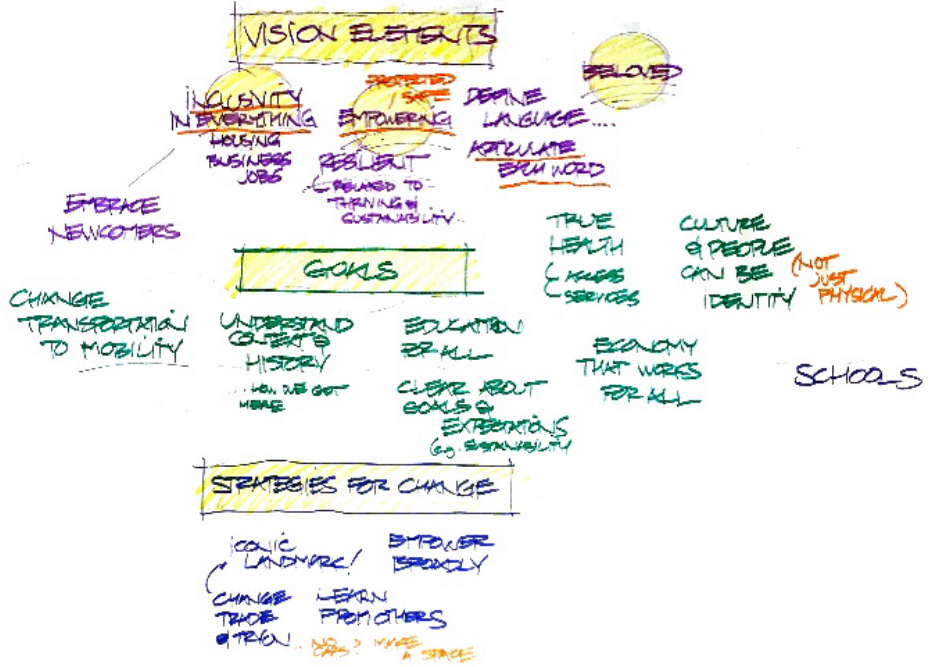 VISION ELEMENTS
INCLUSIVITY
IN EVERYTHING
HOUSING
BUSINESS
JOBS
EMBRACE
NEWCOMERS
PROTECTED
/ SAFE
EMPOWERING
RESILIENT
RELATED TO
THRIVING &
SUSTAINABILITY...
DEFINE
LANGUAGE....
ARTICULATE
EACH WORD
BELOVED
GOALS
CHANGE
TRANSPORTATION
TO MOBILITY
UNDERSTAND
CONTEXT &
HISTORY
...HOW WE GOT
HERE
EDUCATION
FOR ALL
CLEAR ABOUT
GOALS &
EXPECTATIONS
(e.g. SUSTAINABILITY
TRUE
HEALTH
ACCESS
SERVICES
ECONOMY
THAT WORKS
FOR ALL
CULTURE
& PEOPLE
CAN BE
IDENTITY
(NOT
JUST
PHYSICAL)
SCHOOLS
STRATEGIES FOR CHANGE
ICONIC
LANDMARK!
CHANGE
TRADE
EMPOWER
BROADLY
LEARN
FROM OTHERS
NO CARS? MAKE
A SPACE